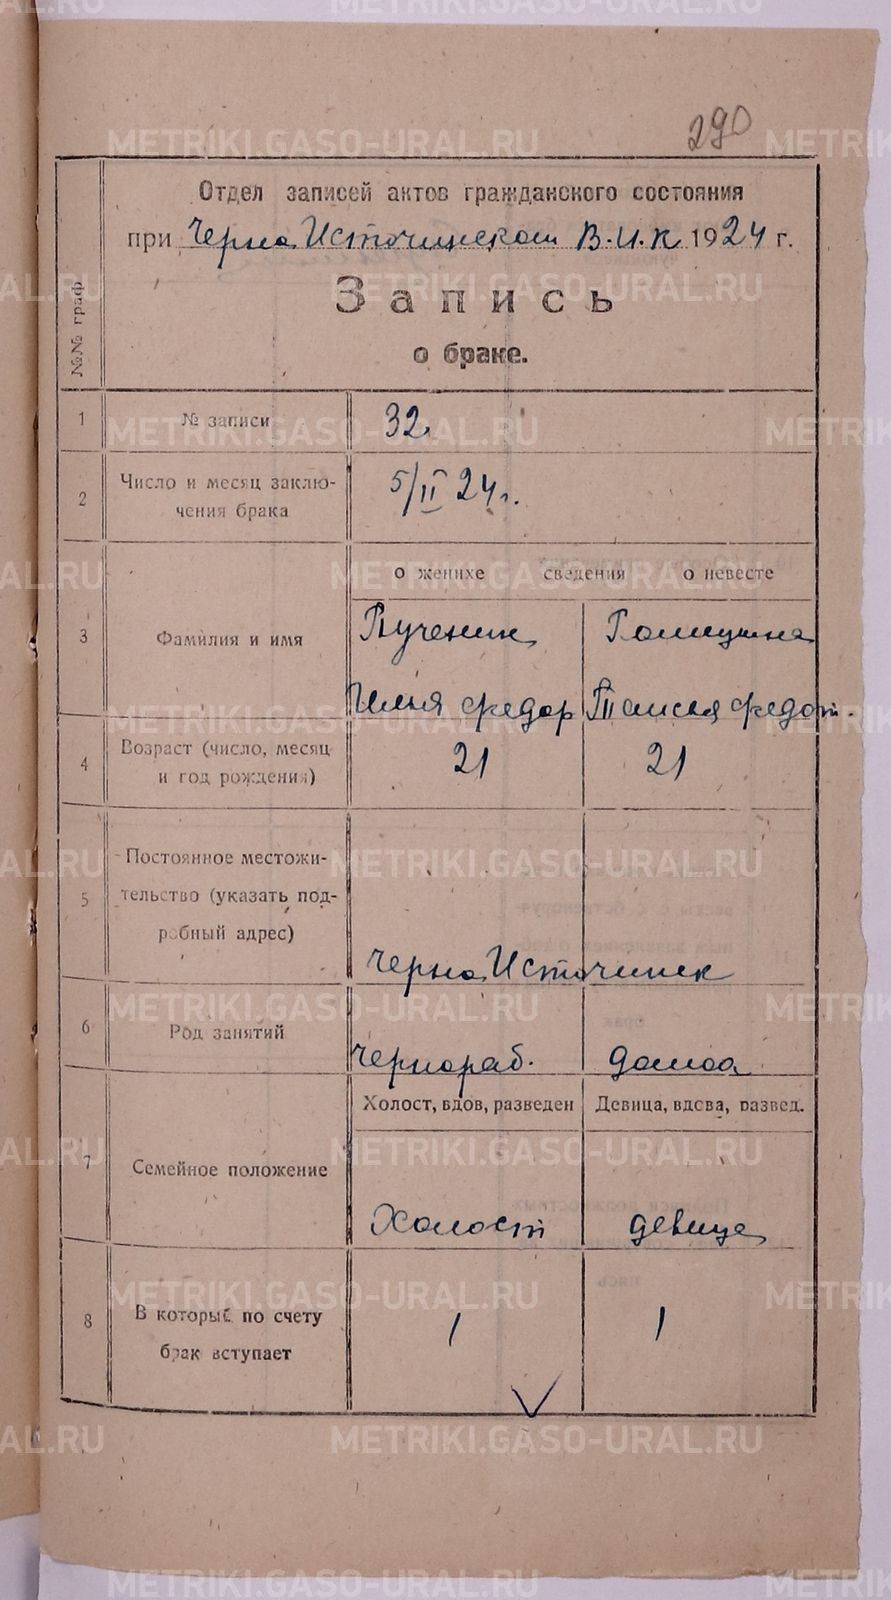 290
Отдел записей актов гражданского состояния
при Черно Источинском В.И.К 1924 г.
Запись
о браке.
№№ граф
1 № записи 32
2 Число и месяц заключения брака 5/II 24 г.
о женихе сведения о невесте
3 Фамилия и имя
Илья Федор Таисья Федот.
4 Возраст (число, месяц
и год рождения) 21 21
5 Постоянное местожи-
тельство (указать под-
робный адрес)
Черно Источинск
6 Род занятий Чернораб. домоа
Холост, вдов, разведен Девица, вдова, развед.
7 Семейное положение
Холост девица
8 В который по счету
брак вступает 1 1
METRIKI.GASO-URAL.RU